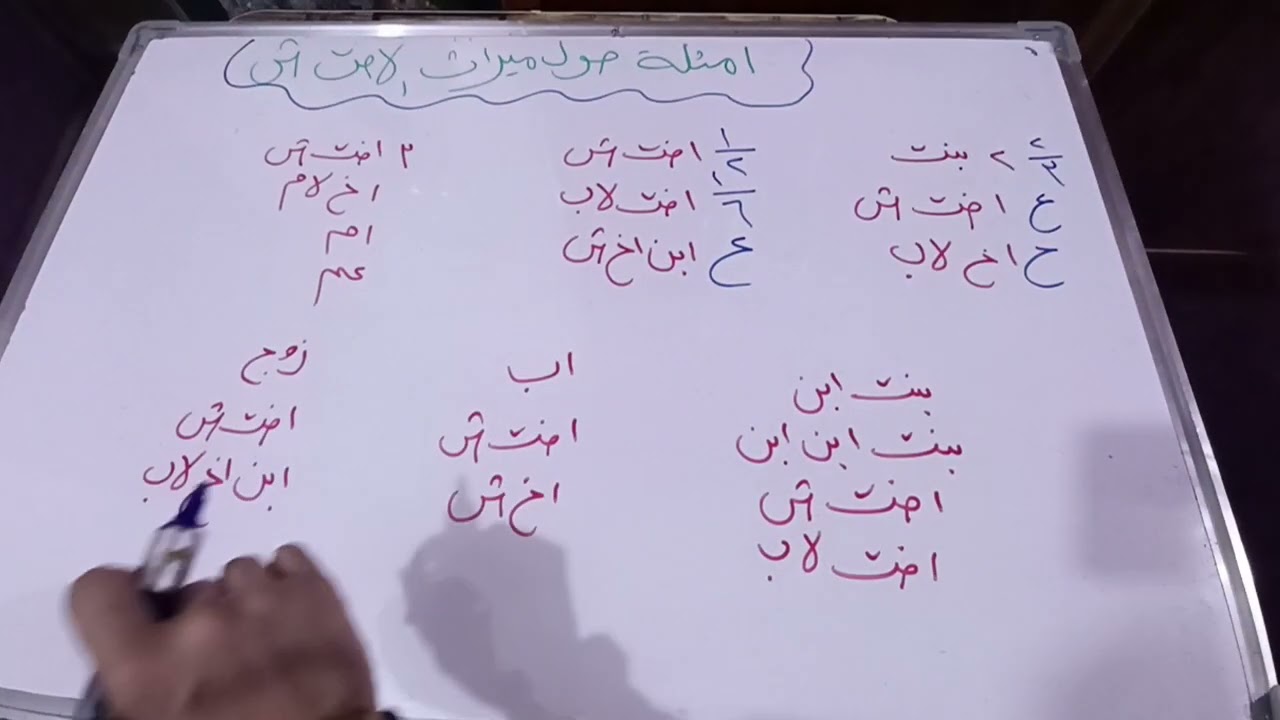 امثلة حول ميراث الاخت ش
٢/٣ ٢ بنت
ع اخت ش
ح اخ لاب
١/٢ اخت ش
١/٦ اخت لاب
ع ابن اخ ش
٢ اخت ش
اخ لام
ام
عم
بنت ابن
بنت ابن ابن
اخت ش
اخت لاب
اب
اخت ش
اخ ش
زوج
اخت ش
ابن اخ لاب